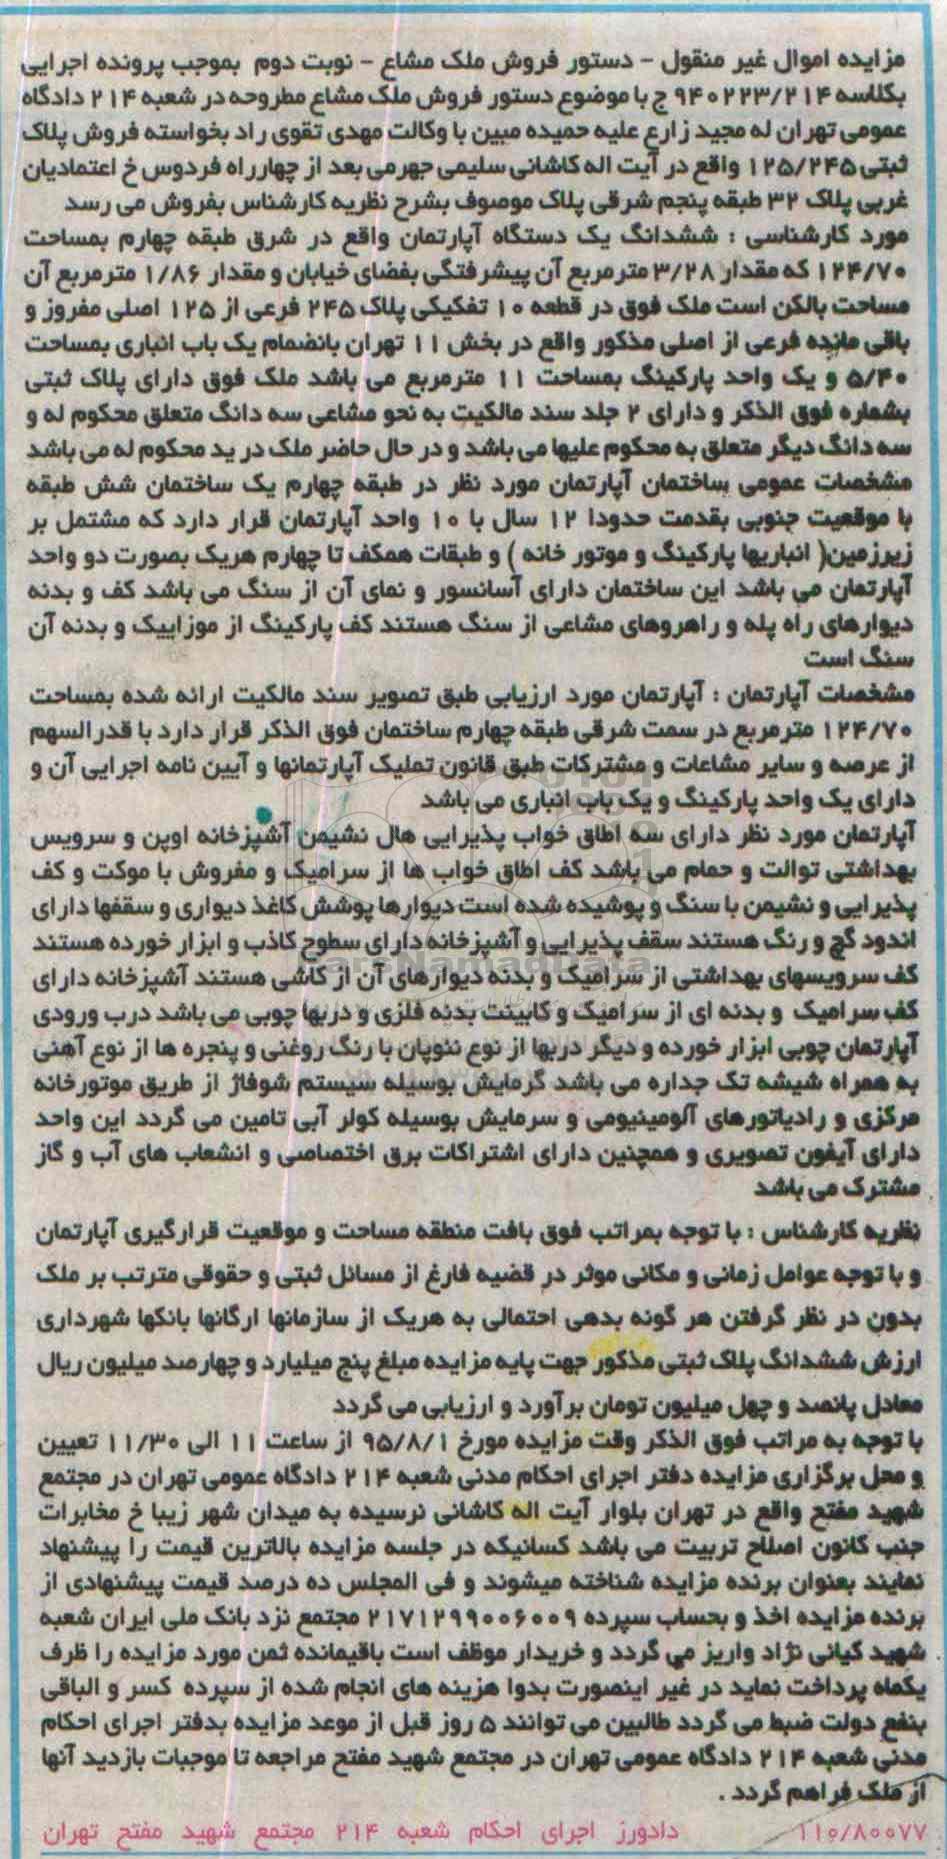 مزایده اموال غیر منقول - دستور فروش ملک مشاع - نوبت دوم بموجب پرونده اجرایی
بکلاسه ۹۴۰۲۲۳/۲۱۴ ج با موضوع دستور فروش ملک مشاع مطروحه در شعبه ۲۱۴ دادگاه
عمومی تهران له مجید زارع علیه حمیده مبین با وکالت مهدی تقوی راد بخواسته فروش پلاک
ثبتی ۱۲۵/۲۴۵ واقع در آیت اله کاشانی سلیمی جهرمی بعد از چهارراه فردوس خ اعتمادیان
غربی پلاک ۳۲ طبقه پنجم شرقی پلاک موصوف بشرح نظریه کارشناس بفروش می رسد
مورد کارشناسی : ششدانگ یک دستگاه آپارتمان واقع در شرق طبقه چهارم بمساحت
۱۲۴/۷۰ که مقدار ۳/۲۸ مترمربع آن پیشرفتگی بفضای خیابان و مقدار ۱/۸۶ مترمربع آن
مساحت بالکن است ملک فوق در قطعه ۱۰ تفکیکی پلاک ۲۴۵ فرعی از ۱۲۵ اصلی مفروز و
باقی مانده فرعی از اصلی مذکور واقع در بخش ۱۱ تهران بانضمام یک باب انباری بمساحت
۵/۴۰ و یک واحد پارکینگ بمساحت ۱۱ مترمربع می باشد ملک فوق دارای پلاک ثبتی
بشماره فوق الذکر و دارای ۲ جلد سند مالکیت به نحو مشاعی سه دانگ متعلق محکوم له و
سه دانگ دیگر متعلق به محکوم علیها می باشد و در حال حاضر ملک در ید محکوم له می باشد
مشخصات عمومی ساختمان آپارتمان مورد نظر در طبقه چهارم یک ساختمان شش طبقه
با موقعیت جنوبی بقدمت حدودا ۱۲ سال با ۱۰ واحد آپارتمان قرار دارد که مشتمل بر
زیرزمین( انباریها پارکینگ و موتور خانه ) و طبقات همکف تا چهارم هریک بصورت دو واحد
آپارتمان می باشد این ساختمان دارای آسانسور و نمای آن از سنگ می باشد کف و بدنه
دیوارهای راه پله و راهروهای مشاعی از سنگ هستند کف پارکینگ از موزاییک و بدنه آن
سنگ است
مشخصات آپارتمان : آپارتمان مورد ارزیابی طبق تصویر سند مالکیت ارائه شده بمساحت
۱۲۴/۷۰ مترمربع در سمت شرقی طبقه چهارم ساختمان فوق الذکر قرار دارد با قدرالسهم
از عرصه و سایر مشاعات و مشترکات طبق قانون تملیک آپارتمانها و آیین نامه اجرایی آن و
دارای یک واحد پارکینگ و یک باب انباری می باشد
آپارتمان مورد نظر دارای سه اطاق خواب پذیرایی هال نشیمن آشپزخانه اوپن و سرویس
بهداشتی توالت و حمام می باشد کف اطاق خواب ها از سرامیک و مفروش با موکت و کف
پذیرایی و نشیمن با سنگ و پوشیده شده است دیوارها پوشش کاغذ دیواری و سقفها دارای
اندود گچ و رنگ هستند سقف پذیرایی و آشپزخانه دارای سطوح کاذب و ابزار خورده هستند
کف سرویسهای بهداشتی از سرامیک و بدنه دیوارهای آن از کاشی هستند آشپزخانه دارای
کف سرامیک و بدنه ای از سرامیک و کابینت بدنه فلزی و دربها چوبی می باشد درب ورودی
آپارتمان چوبی ابزار خورده و دیگر دربها از نوع نئوپان با رنگ روغنی و پنجره ها از نوع آهنی
به همراه شیشه تک جداره می باشد گرمایش بوسیله سیستم شوفاژ از طریق موتورخانه
مرکزی و رادیاتورهای آلومینیومی و سرمایش بوسیله کولر آبی تامین می گردد این واحد
دارای آیفون تصویری و همچنین دارای اشتراکات برق اختصاصی و انشعاب های آب و گاز
مشترک می باشد
نظریه کارشناس : با توجه بمراتب فوق بافت منطقه مساحت و موقعیت قرارگیری آپارتمان
و با توجه عوامل زمانی و مکانی موثر در قضیه فارغ از مسائل ثبتی و حقوقی مترتب بر ملک
بدون در نظر گرفتن هر گونه بدهی احتمالی به هریک از سازمانها ارگانها بانکها شهرداری
ارزش ششدانگ پلاک ثبتی مذکور جهت پایه مزایده مبلغ پنج میلیارد و چهارصد میلیون ریال
معادل پانصد و چهل میلیون تومان برآورد و ارزیابی می گردد
با توجه به مراتب فوق الذکر وقت مزایده مورخ ۹۵/۸/۱ از ساعت ۱۱ الی ۱۱/۳۰ تعیین
و محل برگزاری مزایده دفتر اجرای احکام مدنی شعبه ۲۱۴ دادگاه عمومی تهران در مجتمع
شهید مفتح واقع در تهران بلوار آیت اله کاشانی نرسیده به میدان شهر زیبا خ مخابرات
جنب کانون اصلاح تربیت می باشد کسانیکه در جلسه مزایده بالاترین قیمت را پیشنهاد
نمایند بعنوان برنده مزایده شناخته میشوند و فی المجلس ده درصد قیمت پیشنهادی از
برنده مزایده اخذ و بحساب سپرده ۲۱۷۱۲۹۹۰۰۶۰۰۹ مجتمع نزد بانک ملی ایران شعبه
شهید کیانی نژاد واریز می گردد و خریدار موظف است باقیمانده ثمن مورد مزایده را ظرف
یکماه پرداخت نماید در غیر اینصورت بدوا هزینه های انجام شده از سپرده کسر و الباقی
بنفع دولت ضبط می گردد طالبین می توانند ۵ روز قبل از موعد مزایده بدفتر اجرای احکام
مدنی شعبه ۲۱۴ دادگاه عمومی تهران در مجتمع شهید مفتح مراجعه تا موجبات بازدید آنها
از ملک فراهم گردد .
۱۱۰/۸۰۰۷۷ دادورز اجرای احکام شعبه ۲۱۴ مجتمع شهید مفتح تهران